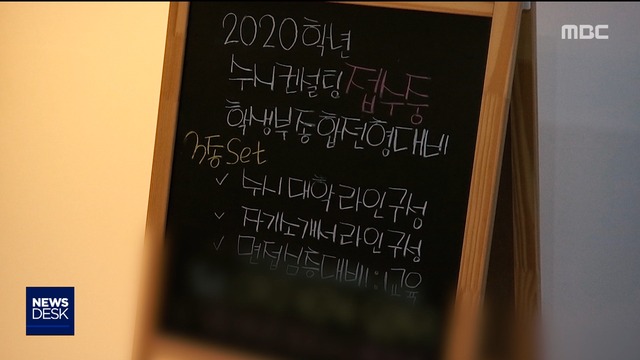 2020학년
수시컨설팅 접수중
학생부종합전형대비
3종Set
✓ 수시 대학 라인구성
✓ 자기소개서라인구성
✓ 면접심층대비1:1교육
MBC
NEWS
DESK